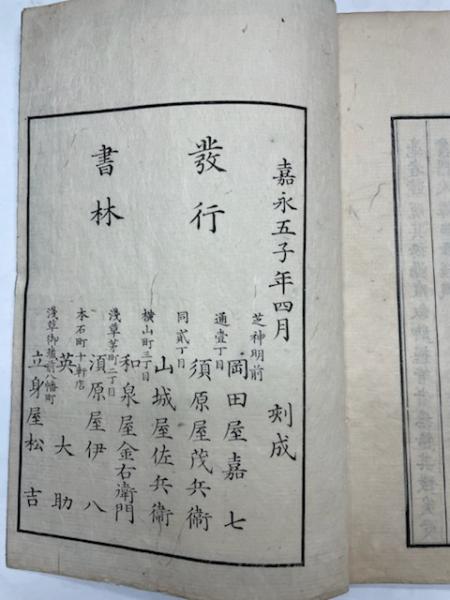 嘉永五子年四月 刻成
發行
書林
芝神明前
岡田屋嘉七
通壹丁目
須原屋茂兵衛
同貳丁目
山城屋佐兵衛
横山町三丁目
和泉屋金右衛門
淺草茅町二丁目
須原屋伊八
本石町十軒店
英大助
淺草御藏前八幡町
立身屋松吉